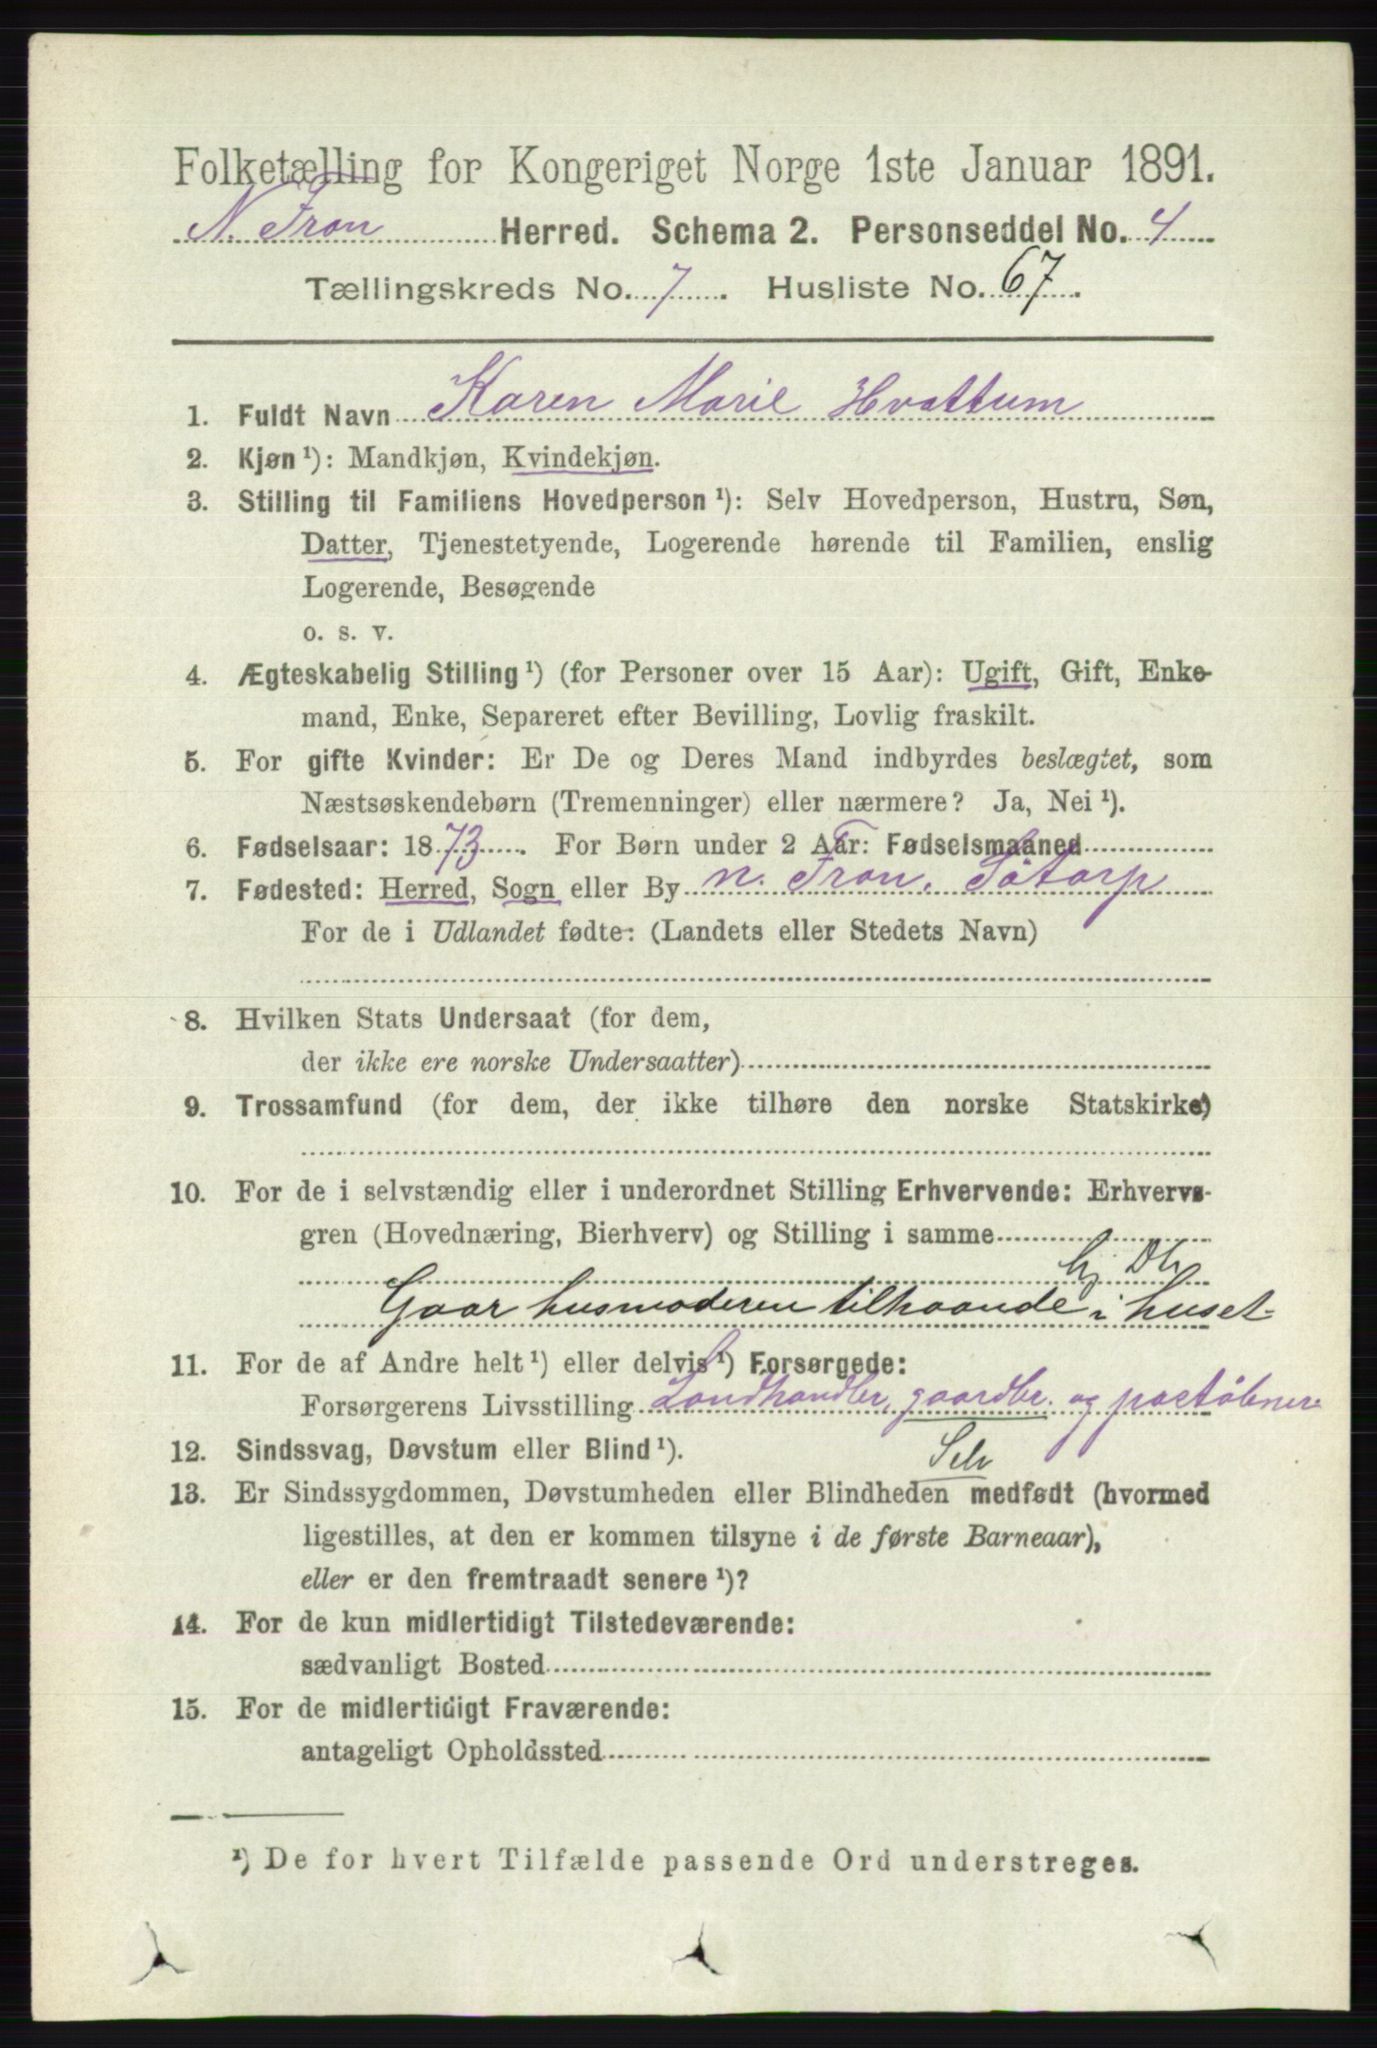 Folketælling for Kongeriget Norge 1ste Januar 1891.
N. Fron Herred. Schema 2. Personseddel No. 4
Tællingskreds No. 7. Husliste No. 67.
1. Fuldt Navn Karen Marie Hvattum
2. Kjøn ¹): Mandkjøn, Kvindekjøn.
3. Stilling til Familiens Hovedperson ¹): Selv Hovedperson, Hustru, Søn,
Datter, Tjenestetyende, Logerende hørende til Familien, enslig
Logerende, Besøgende
o. s. v.
4. Ægteskabelig Stilling ¹) (for Personer over 15 Aar): Ugift, Gift, Enke-
mand, Enke, Separeret efter Bevilling, Lovlig fraskilt.
5. For gifte Kvinder: Er De og Deres Mand indbyrdes beslægtet, som
Næstsøskendebørn (Tremenninger) eller nærmere? Ja, Nei ¹).
6. Fødselsaar: 1873. For Børn under 2 Aar: Fødselsmaaned
7. Fødested: Herred, Sogn eller By n. Fron. Sôtorp
For de i Udlandet fødte: (Landets eller Stedets Navn)
8. Hvilken Stats Undersaat (for dem,
der ikke ere norske Undersaatter)
9. Trossamfund (for dem, der ikke tilhøre den norske Statskirke)
10. For de i selvstændig eller i underordnet Stilling Erhvervende: Erhvervs-
gren (Hovednæring, Bierhverv) og Stilling i samme
hj Dtr
Gaar husmoderen tilhaande i huset
11. For de af Andre helt ¹) eller delvis ¹) Forsørgede:
Forsørgerens Livsstilling Landhandler, gaardbr. og postôbner
12. Sindssvag, Døvstum eller Blind ¹). Selv
13. Er Sindssygdommen, Døvstumheden eller Blindheden medfødt (hvormed
ligestilles, at den er kommen tilsyne i de første Barneaar),
eller er den fremtraadt senere ¹)?
14. For de kun midlertidigt Tilstedeværende:
sædvanligt Bosted
15. For de midlertidigt Fraværende:
antageligt Opholdssted
¹) De for hvert Tilfælde passende Ord understreges.